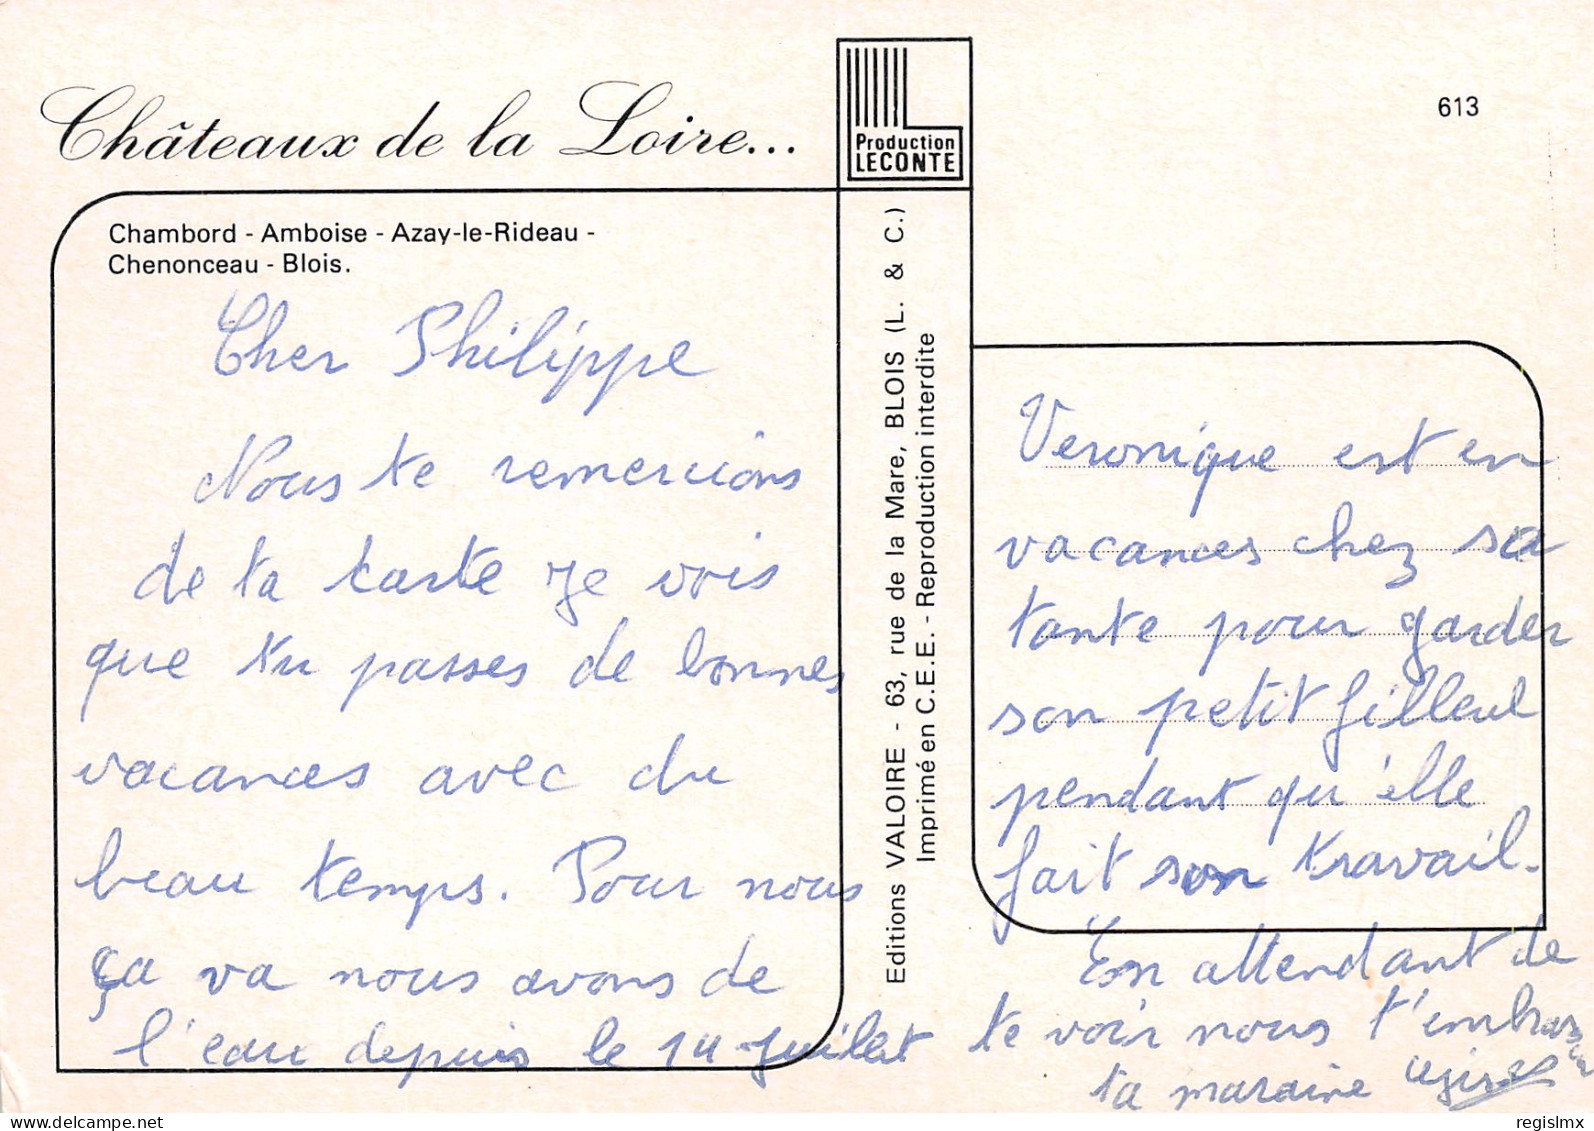 Châteaux de la Loire...
Production
LECONTE
613
Chambord - Amboise - Azay-le-Rideau -
Chenonceau - Blois.
Cher Philippe
Nous te remercions
de ta carte je vois
que tu passes de bonnes
vacances avec du
beau temps. Pour nous
ça va nous avons de
l'eau depuis le 14 juillet
Editions VALOIRE - 63, rue de la Mare, BLOIS (L. & C.)
Imprimé en C.E.E. - Reproduction interdite
Veronique est en
vacances chez sa
tante pour garder
son petit filleul
pendant qu'elle
fait son travail.
En attendant de
te voir nous t'embrassons
ta maraine
regislmx